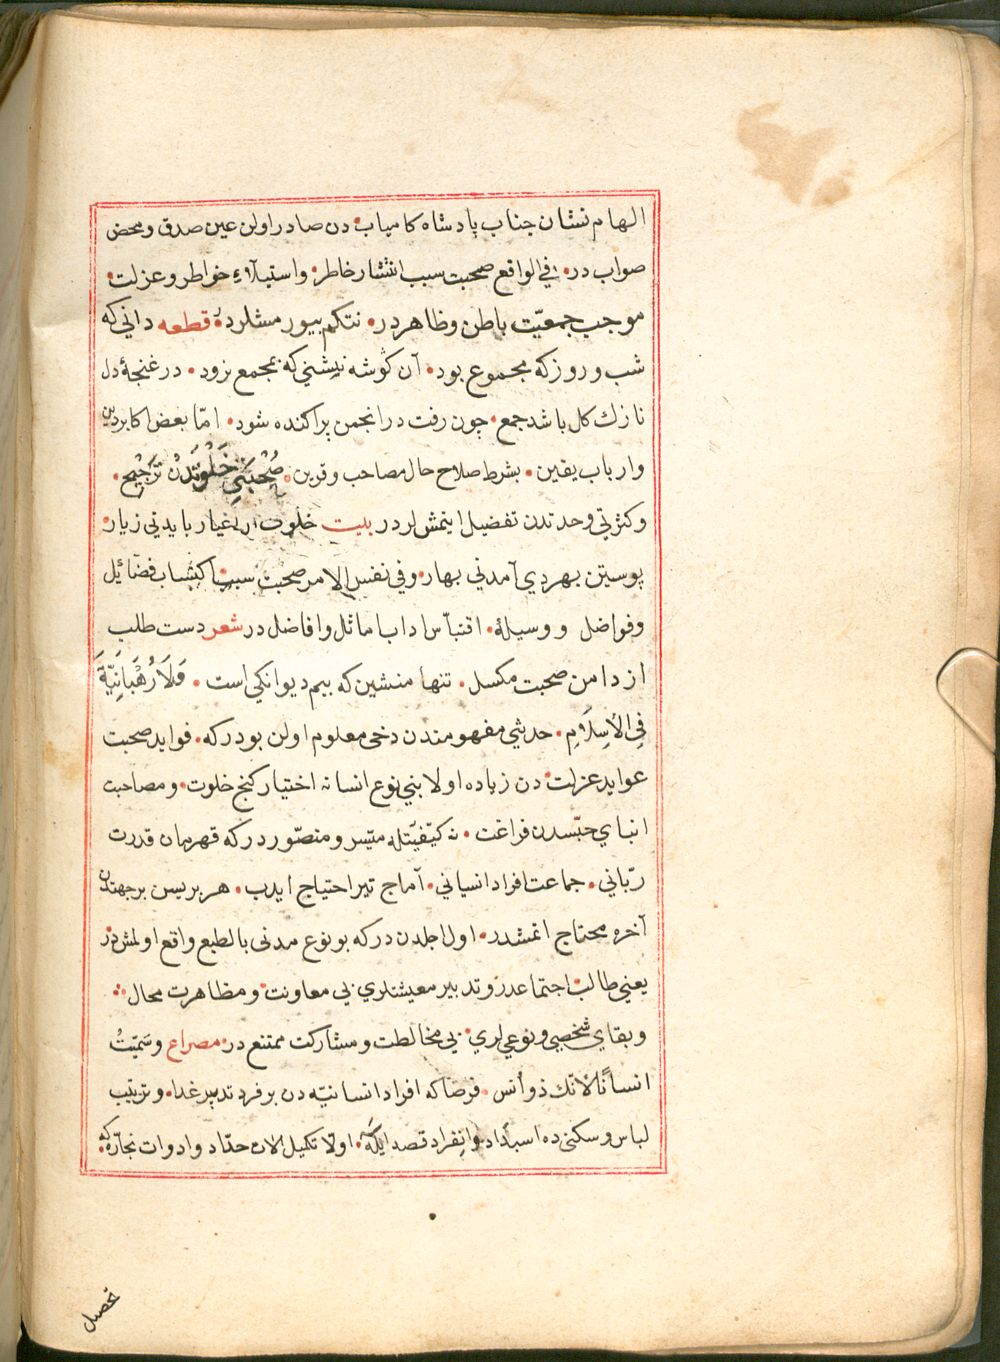 الهام نشان جناب پادشاه كامياب دن صادر اولن عين صدق ومحض
صواب در • في الواقع صحبت سبب انتشار خاطر • واستيلآء خواطر وعزلت •
موجب جمعيّت باطن وظاهر در • نتكم بيورمشلردر • قطعه داني كه
شب وروز كه مجموع بود • آن كوشه نيشني كه بمجمع نرود • در غنچۀ دل
نازك كل باشد جمع • چون رفت در انجمن پراكنده شود • امّا بعض اكابر دين
وارباب يقين • بشرط صلاح حال مصاحب وقرين • صُحْبَتَي خَلْوَتَدَنْ تَرْجِيح •
وكثرتي وحدتدن تفضيل ايتمشلر در بيت خلوت از اغيار بايد ني زيار •
پوستين بهر دي آمد ني بهار • وفي نفس الامر صحبت سبب اكتساب فضائيل
وفواضل ووسيلۀ • اقتباس اداب اماثل وافاضل در شعر دست طلب
از دامن صحبت مكسل • تنها منشين كه بيم ديوانكي است • وَلَا رُهْبَانِيَّةَ
فِي الْاِسِلَامِ • حديثي مفهومندن دخى معلوم اولن بودر كه • فوايد صحبت
عوايد عزلت دن زياده اولا بني نوع انسانه اختيار كنج خلوت • ومصاحبت
ابناي جنسدن فراغت • نه كيفيّتله متيسر ومتصّور در كه قهرمان قدرت
ربّاني • جماعت افراد انسياني • آماج تير احتياج ايدب • هر بريسن بر جهتدن
آخره محتاج اتمشدر • اول اجلدن در كه بو نوع مدنى بالطبع واقع اولمش در
يعني طالب اجتماعدر وتدبير معيشتلري بي معاونت ومظاهرت محال
وبقاي شخصي ونوعي لري • بي مخالطت ومشاركت ممتنع در • مصراع وسَمّيتُ
انسانًا لانّك ذو اُنس • فرضا كه افراد انسانيّه دن بر فرد تدبير غدا • وترتيب
لباس وسكنى ده استبداد وانفراد قصد ايلكه • اولا تكميل الات حدّاد وادوات نجاره كه
تحصيل